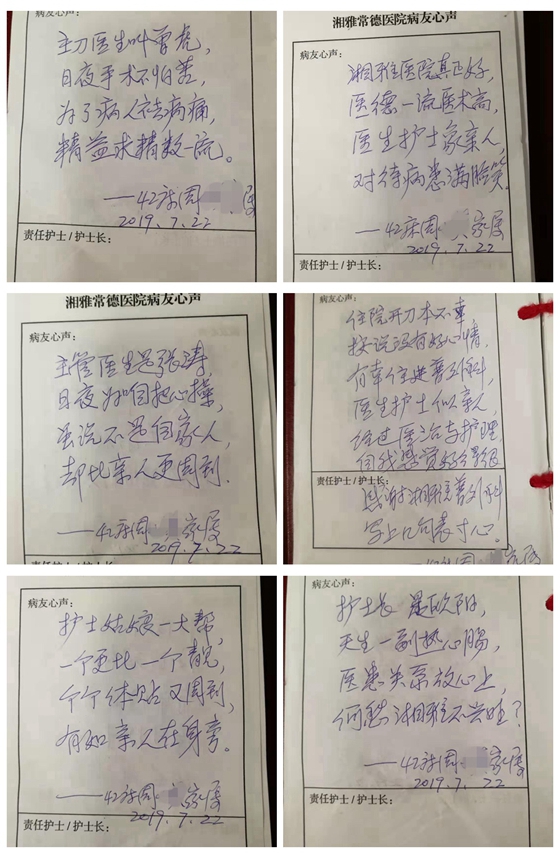 病友心声：
主刀医生叫曾虎，
日夜手术不怕苦，
为了病人祛病痛，
精益求精数一流。
——42床周
属
2019.7.22
责任护士/护士长：
湘雅常德医院病友心声
病友心声：
湘雅医院真正好，
医德一流医术高，
医生护士象亲人，
对待病患满脸笑。
——42床周
家属
2019.7.22
责任护士/护士长：
湘雅常德医院病友心声
病友心声：
主管医生是张涛，
日夜为咱把心操，
虽说不是自家人，
却比亲人更周到.
——42床周
家属
2019.7.22
责任护士/护士长：
病友心声：
住院开刀本不幸，
按说没有好心情，
有幸住进普外科，
医生护士似亲人，
经过医治与护理
自我感觉好得很
责任护士/护士长：
感谢湘雅普外科
写上几句表寸心。
——42床周
家属
病友心声：
护士姑娘一大帮，
一个更比一个靓，
个个体贴又周到，
有如亲人在身旁。
——42床周
家属
2019.7.22
责任护士/护士长：
病友心声：
护士长是欧阳，
天生一副热心肠，
医患关系放心上，
何愁湘雅不兴旺？
——42床周
家属
2019.7.22
责任护士/护士长：